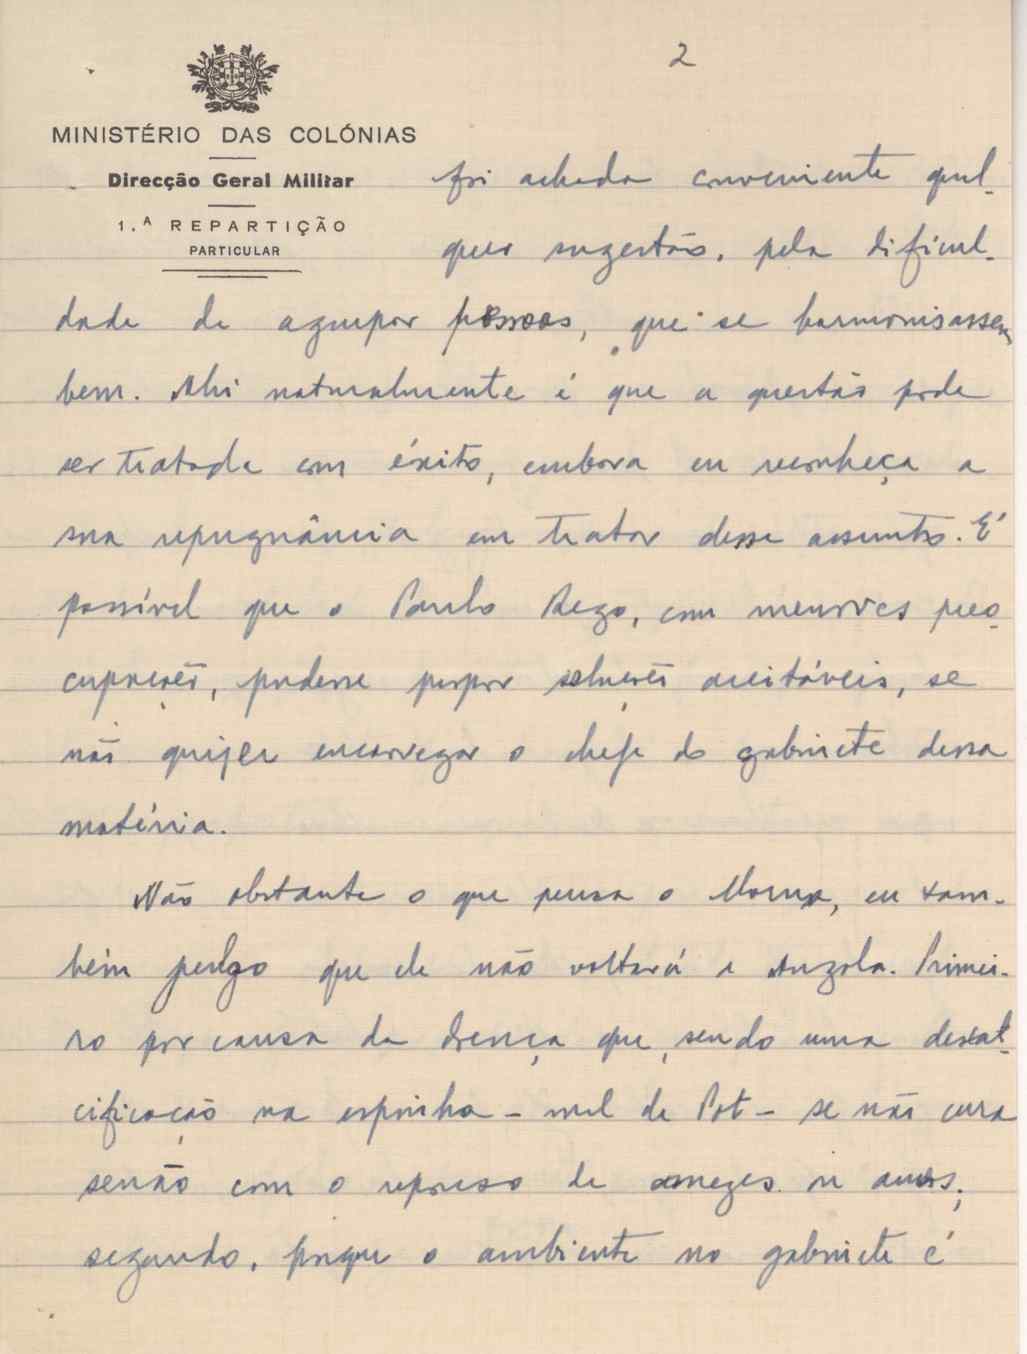 2
MINISTÉRIO DAS COLÓNIAS
Direcção Geral Militar
1.ª REPARTIÇÃO
PARTICULAR
foi achada conveniente qual-
quer sugestão, pela dificul-
dade de agrupar pessoas, que se harmonisassem
bem. Ahi naturalmente é que a questão pode
ser tratada com éxito, embora eu reconheça a
sua repugnância em tratar desse assunto. É
possível que o Paulo Rego, com menores preo-
cupações, pudesse propor soluções aceitáveis, se
não quizer encarregar o chefe do gabinete dessa
matéria.
Não obstante o que pensa o Morna, eu tam-
bém penso que ele não voltará a Angola. Primei-
ro por causa da doença que, sendo uma descal-
cificação na espinha - mal de Pot - se não cura
senão com o repouso de mezes ou anos;
segundo, porque o ambiente no gabinete é